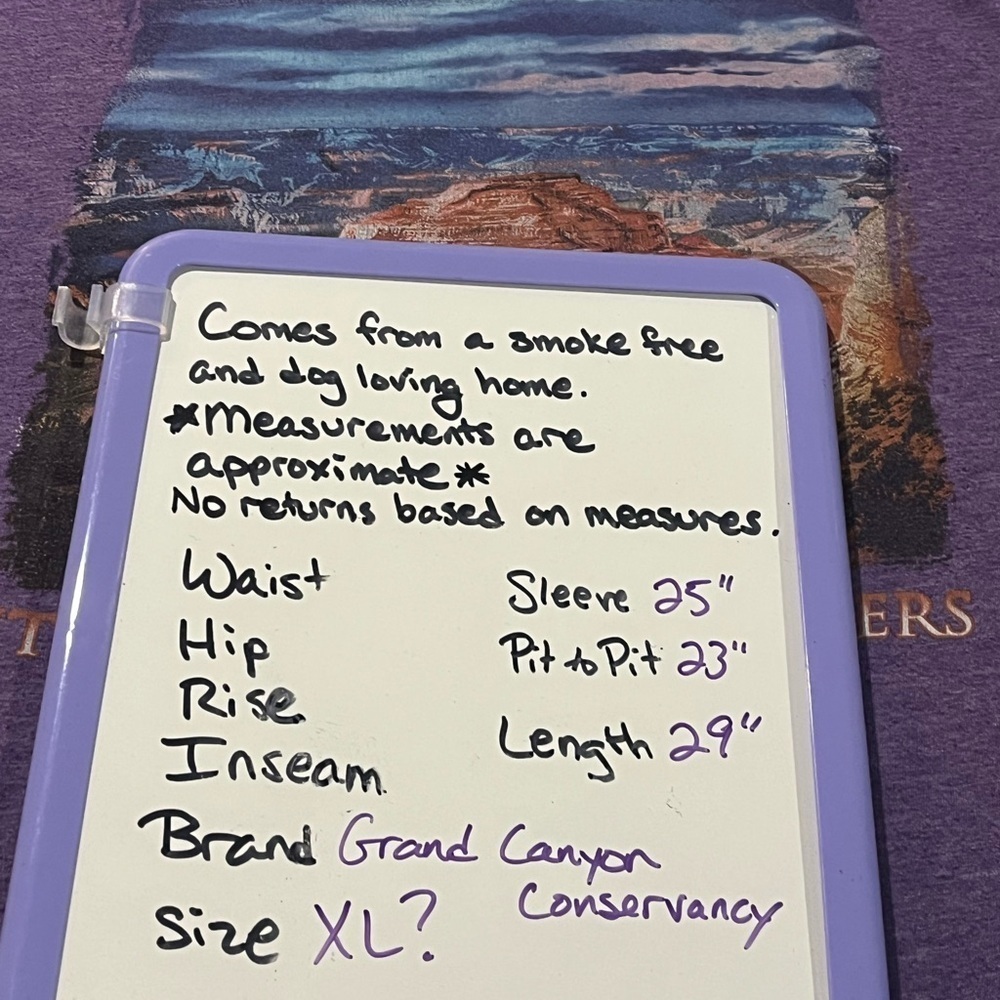 Comes from a smoke free
and dog loving home.
*Measurements are
approximate*
No returns based on measures.
Waist
Hip
Rise
Inseam
Sleeve 25"
Pit to Pit 23"
Length 29"
Brand Grand Canyon
Conservancy
Size XL?
T
ERS